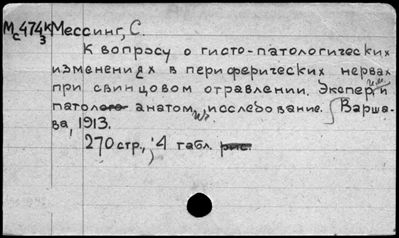 Мс474к3 Мессинг, С.
К вопросу о гисто-патологических
изменениях в периферических нервах
при свинцовом отравлении. Экспер. и
патол. анатом. исследование. Варша-
ва, 1913.
270 стр., ; 4 табл. рис.